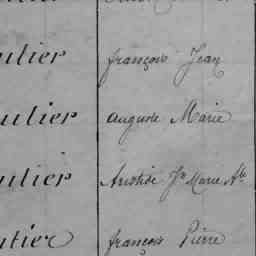 ulier françois Jean
ulier auguste Marie
ulier Aristide Jn Marie Ate
tier françois Pierre